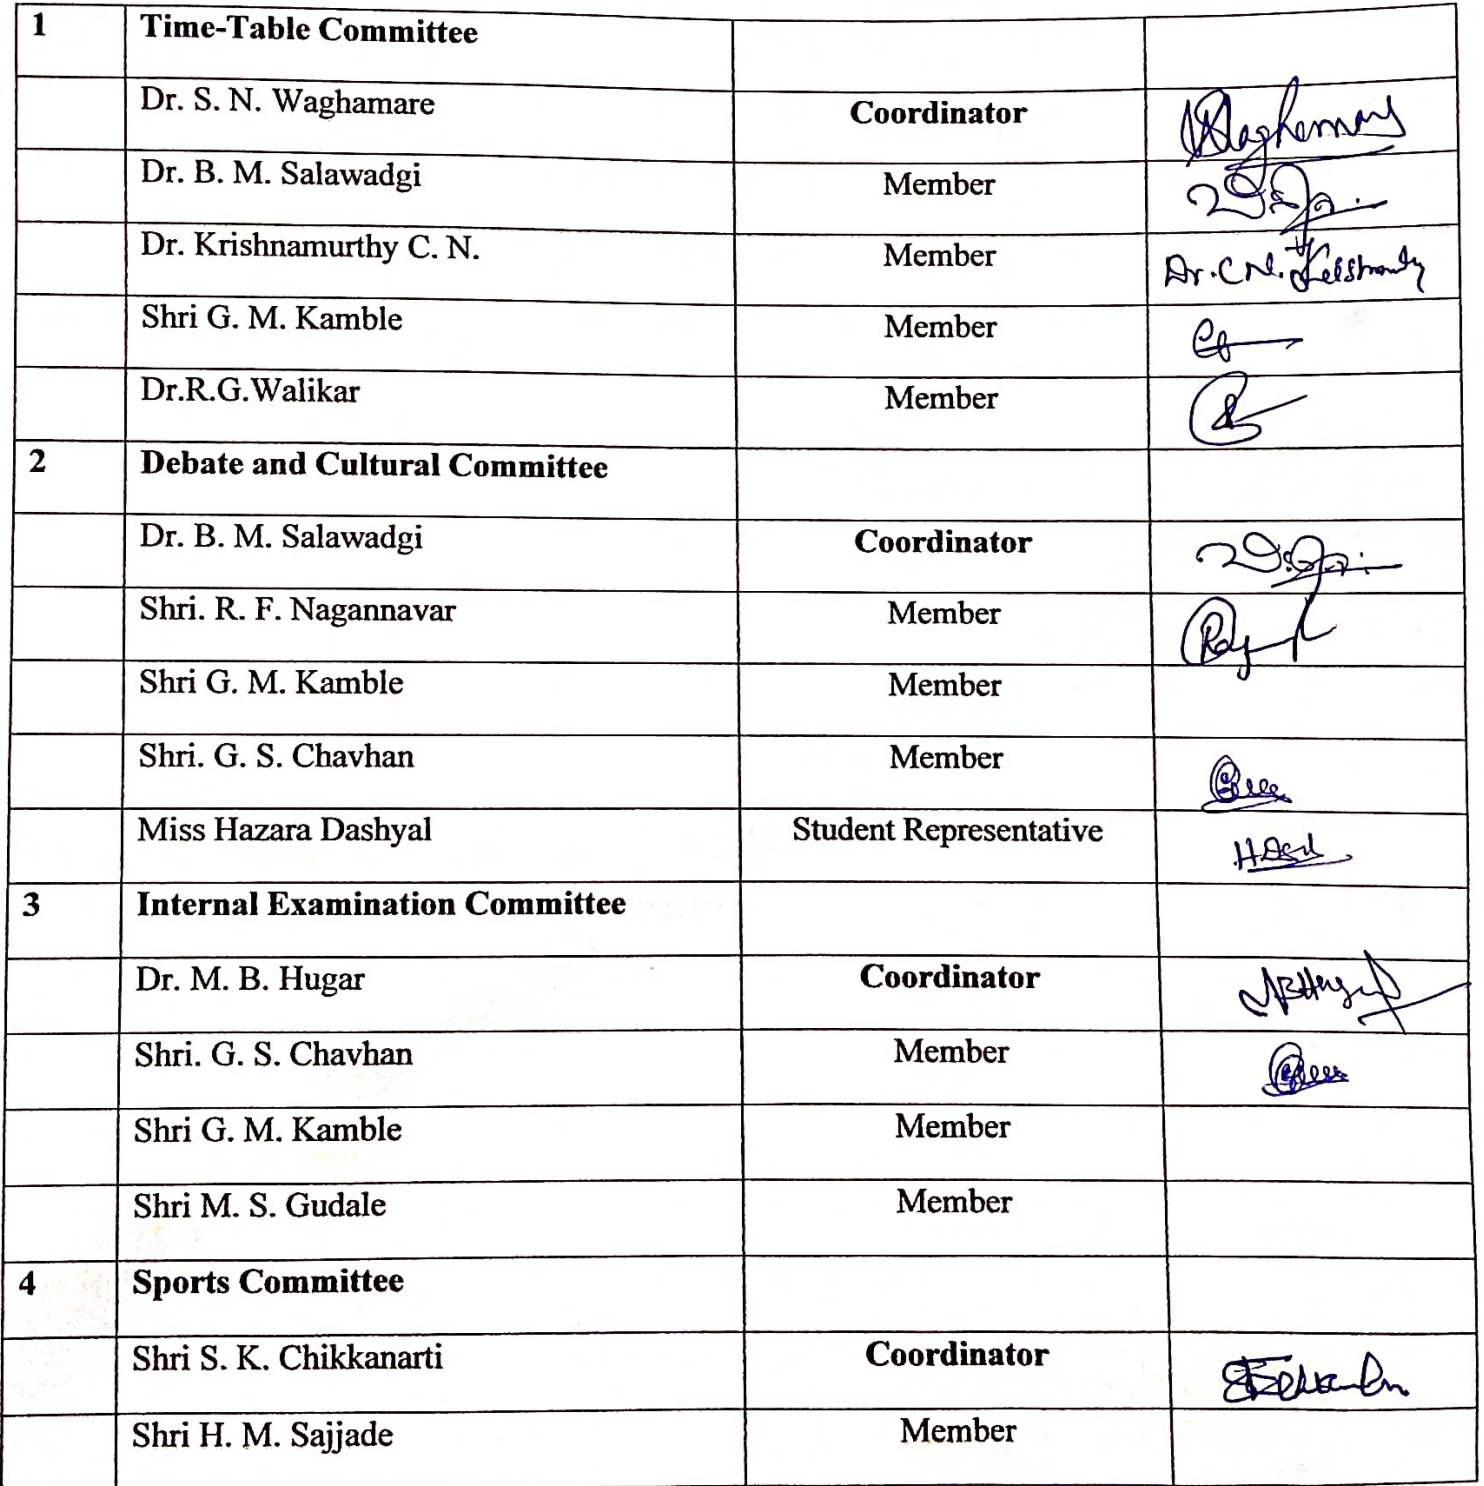 1 Time-Table Committee
Dr. S. N. Waghamare Coordinator
Dr. B. M. Salawadgi Member
Dr. Krishnamurthy C. N. Member Dr. C. N.
Shri G. M. Kamble Member
Dr.R.G.Walikar Member
2 Debate and Cultural Committee
Dr. B. M. Salawadgi Coordinator
Shri. R. F. Nagannavar Member
Shri G. M. Kamble Member
Shri. G. S. Chavhan Member
Miss Hazara Dashyal Student Representative
3 Internal Examination Committee
Dr. M. B. Hugar Coordinator
Shri. G. S. Chavhan Member
Shri G. M. Kamble Member
Shri M. S. Gudale Member
4 Sports Committee
Shri S. K. Chikkanarti Coordinator
Shri H. M. Sajjade Member